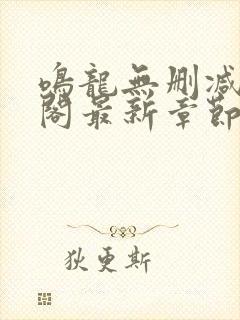 鳴龍無刪減
閣最新章節
狄更斯